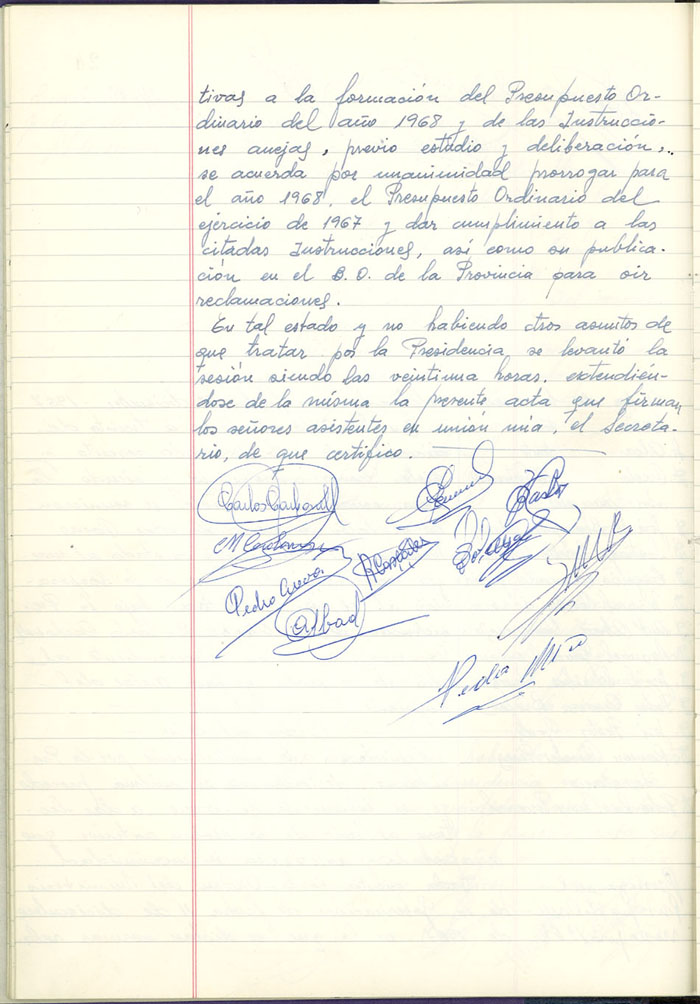 tivas a la formación del Presupuesto Or-
dinario del año 1968 y de las Instruccio-
nes anejas, previo estudio y deliberación,
se acuerda por unanimidad prorrogar para
el año 1968, el Presupuesto Ordinario del
ejercicio de 1967 y dar cumplimiento a las
citadas Instrucciones, así como su publica-
ción en el B.O. de la Provincia para oir
reclamaciones.
En tal estado y no habiendo otros asuntos de
que tratar por la Presidencia se levantó la
sesión siendo las veintiuna horas, extendién-
dose de la misma la presente acta que firman
los señores asistentes en unión mía, el Secreta-
rio, de que certifico.
Carlos
Pedro
Abad
Pedro